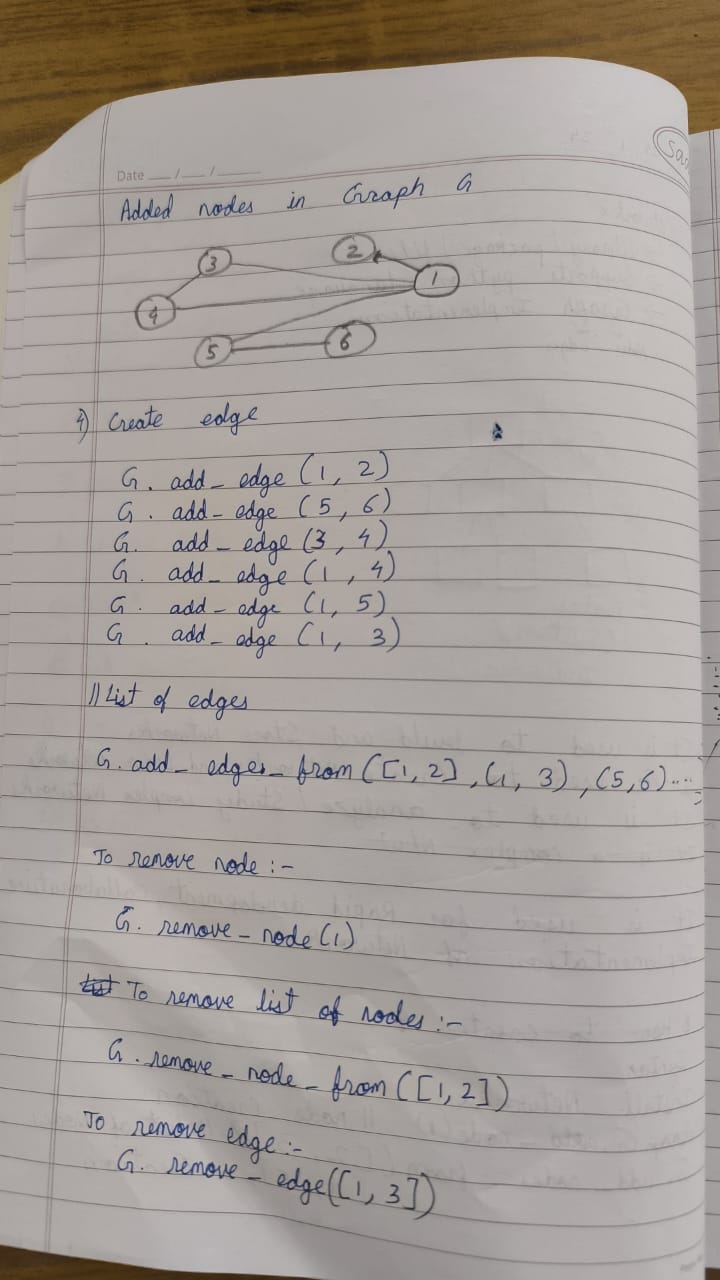 Sa
Date __/__/____
Added nodes in Graph G
3
2
1
4
5
6
4) Create edge
G. add_edge (1, 2)
G. add_edge (5, 6)
G. add_edge (3, 4)
G. add_edge (1, 4)
G. add_edge (1, 5)
G. add_edge (1, 3)
// List of edges
G. add_edges_from ([1, 2], (1, 3), (5,6)....
To remove node :-
G. remove_node (1)
To remove list of nodes :-
G. remove_node_from ([1, 2])
To remove edge :-
G. remove_edge([1, 3])